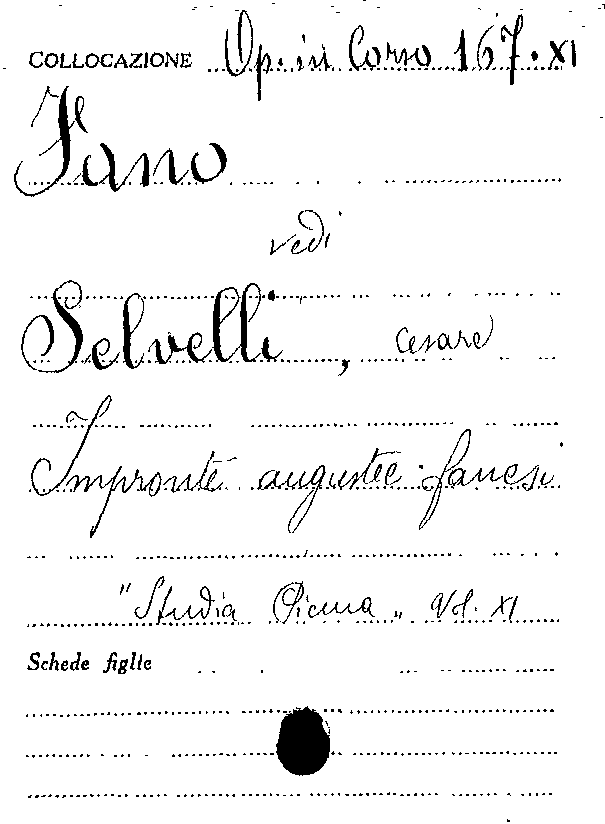 COLLOCAZIONE Op. in Corso 167. XI
Fano
vedi
Selvelli, Cesare
Impronte augustee fanesi
"Studia Picena„ Vol. XI
Schede figlie